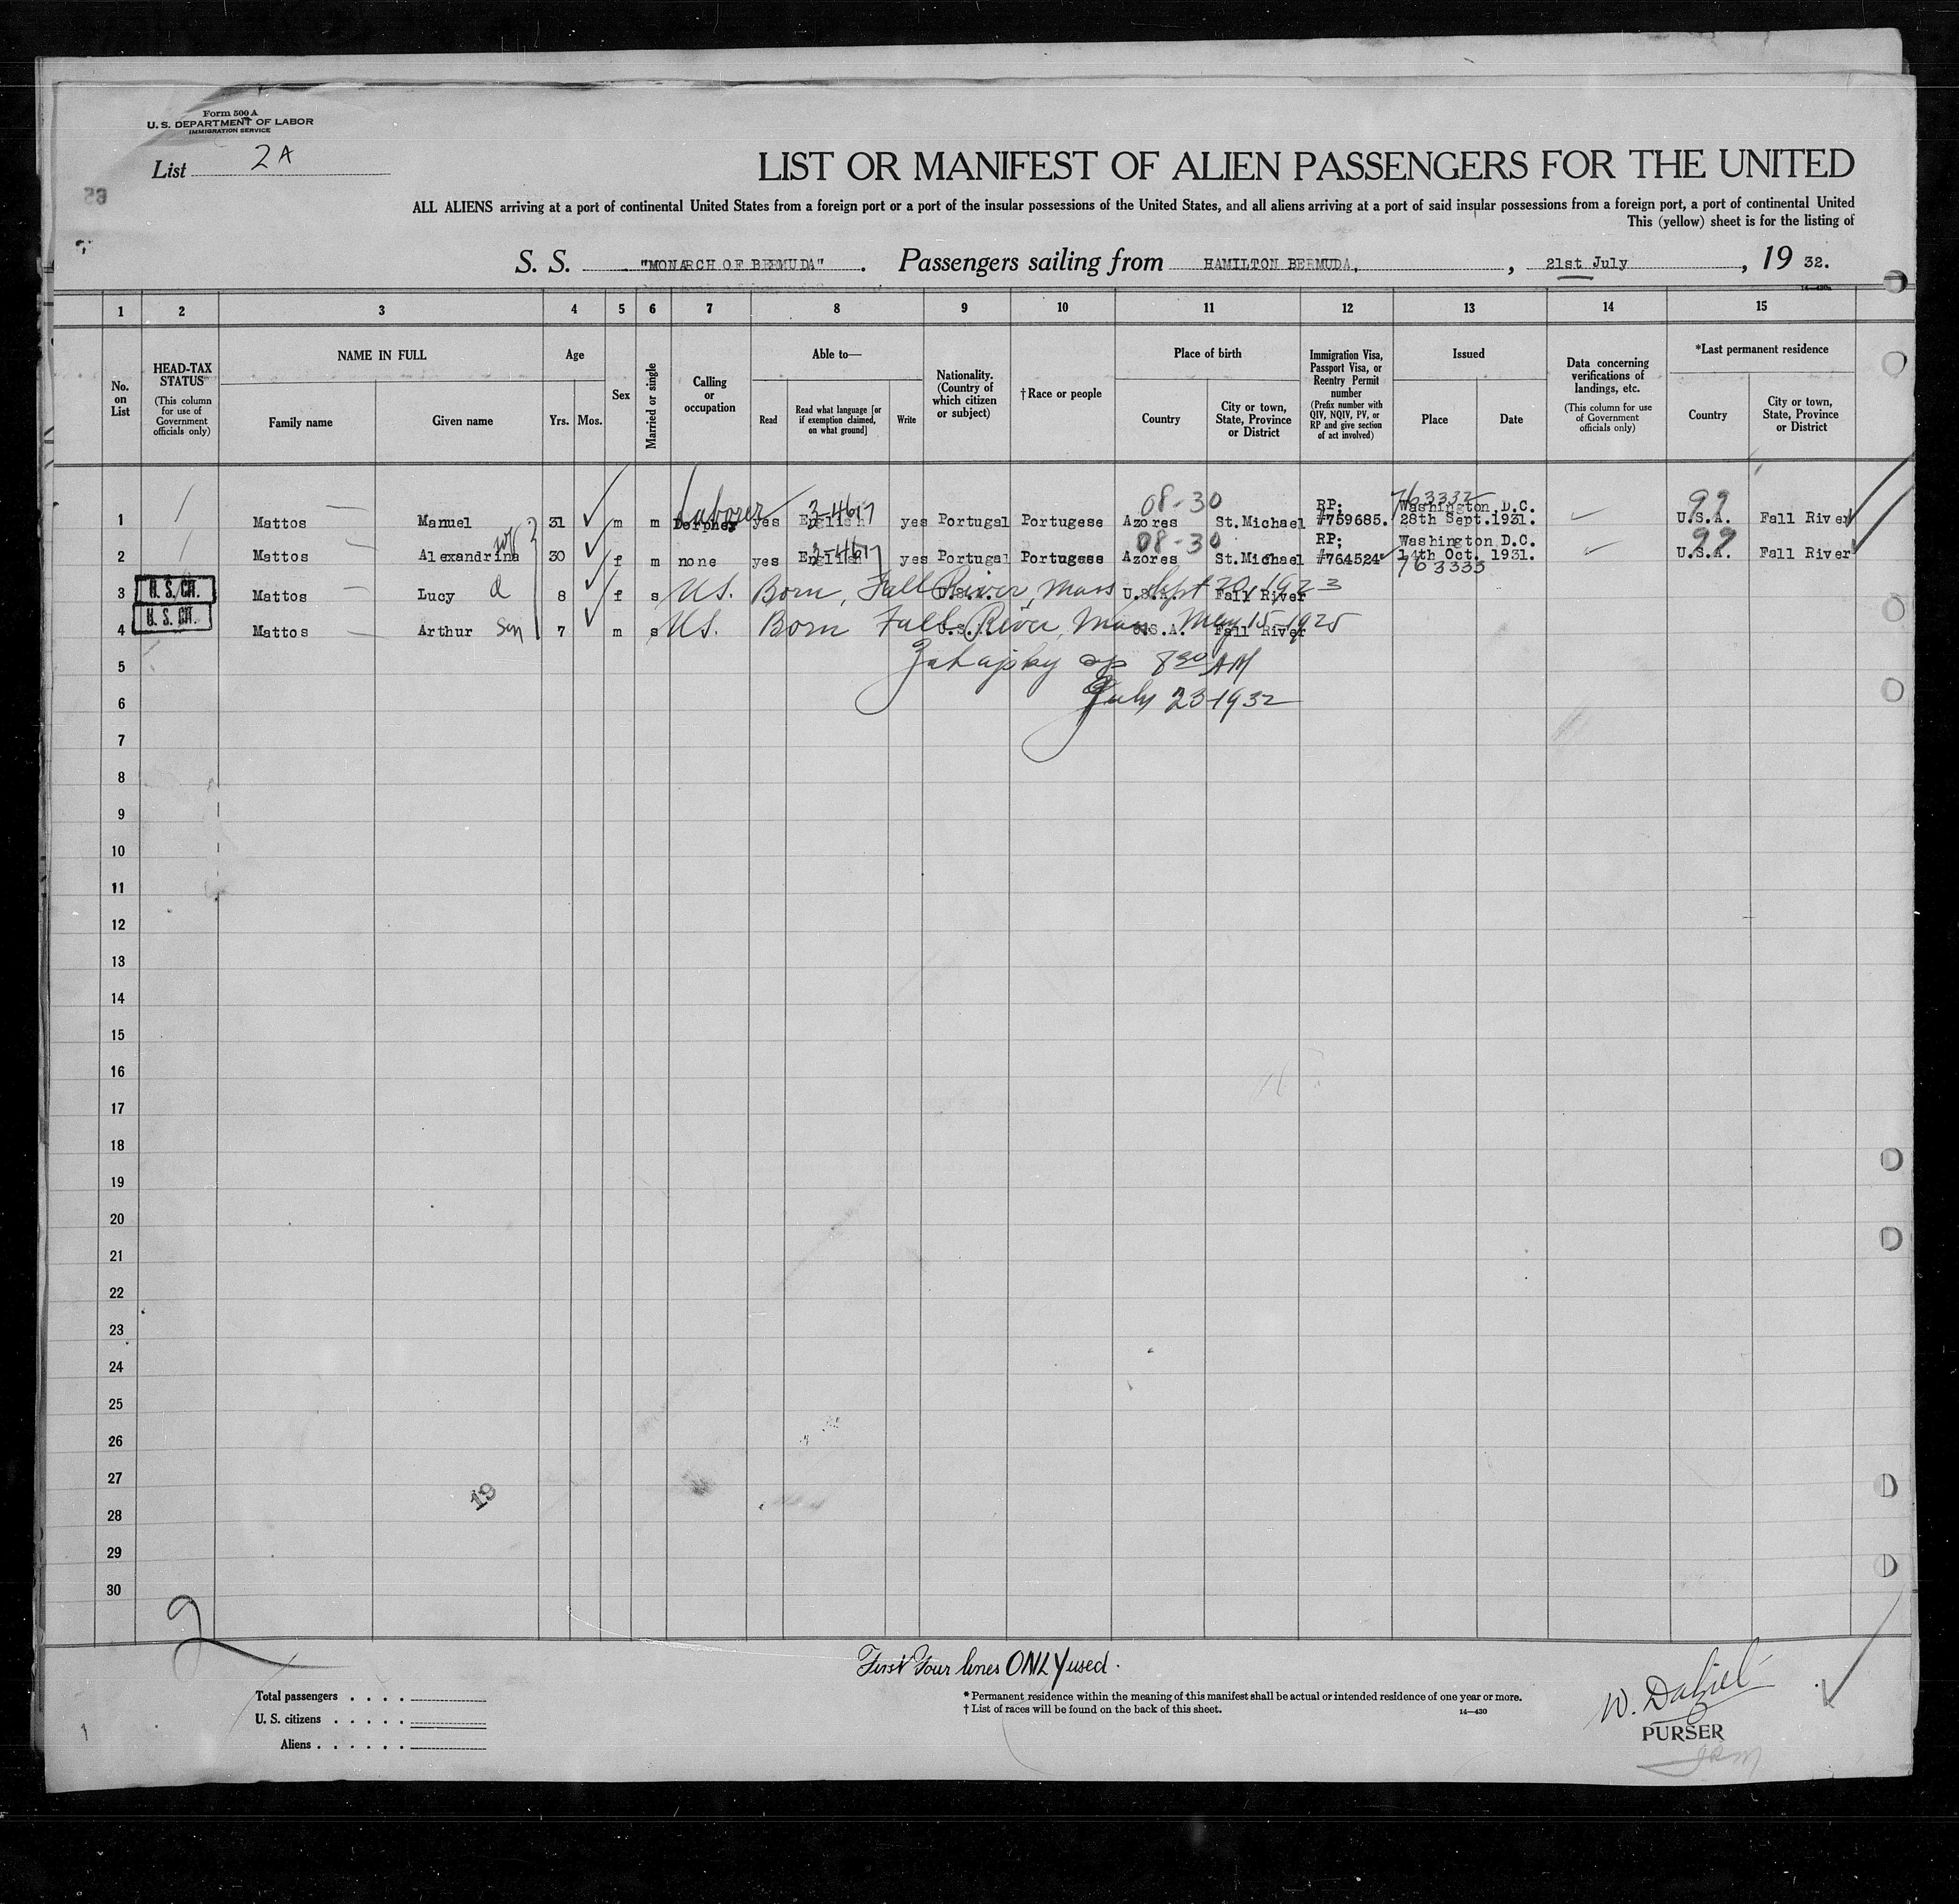 Form 500 A
U. S. DEPARTMENT OF LABOR
IMMIGRATION SERVICE
List 2A
LIST OR MANIFEST OF ALIEN PASSENGERS FOR THE UNITED
ALL ALIENS arriving at a port of continental United States from a foreign port or a port of the insular possessions of the United States, and all aliens arriving at a port of said insular possessions from a foreign port, a port of continental United
This (yellow) sheet is for the listing of
S. S. "MONARCH OF BERMUDA". Passengers sailing from HAMILTON BERMUDA, , 21st July , 19 32.
1 2 3 4 5 6 7 8 9 10 11 12 13 14 15
No. on List
HEAD-TAX STATUS (This column for use of Government officials only)
NAME IN FULL
Family name
Given name
Age
Yrs. Mos.
Sex
Married or single
Calling or occupation
Able to—
Read
Read what language [or if exemption claimed, on what ground]
Write
Nationality. (Country of which citizen or subject)
†Race or people
Place of birth
Country
City or town, State, Province or District
Immigration Visa, Passport Visa, or Reentry Permit number (Prefix number with QIV, NQIV, PV, or RP and give section of act involved)
Issued
Place
Date
Data concerning verifications of landings, etc. (This column for use of Government officials only)
*Last permanent residence
Country
City or town, State, Province or District
08-30 763332 99
Labourer 3-4617 RP; Washington D.C.
1 Mattos Manuel 31 m m yes English yes Portugal Portugese Azores St.Michael #759685. 28th Sept.1931. U.S.A. Fall River
wf 3-4617 08-30 RP; Washington D.C. 99
2 Mattos Alexandrina 30 f m none yes English yes Portugal Portugese Azores St.Michael #764524 14th Oct. 1931. U.S.A. Fall River
763333
3 U. S. CIT. Mattos Lucy d 8 f s U.S. Born, Fall River, Mass Sept 20, 1923 U.S.A. U.S.A. Fall River
4 U. S. CIT. Mattos Arthur son 7 m s U.S. Born Fall River, Mass May 15-1925 U.S.A. U.S.A. Fall River
5 8 30 AM
6 July 23-1932
7
8
9
10
11
12
13
14
15
16
17
18
19
20
21
22
23
24
25
26
27
19
28
29
30
2
First Four lines ONLY used.
Total passengers . . . .
U. S. citizens . . . . .
Aliens . . . . . .
* Permanent residence within the meaning of this manifest shall be actual or intended residence of one year or more.
† List of races will be found on the back of this sheet.
14—430
PURSER